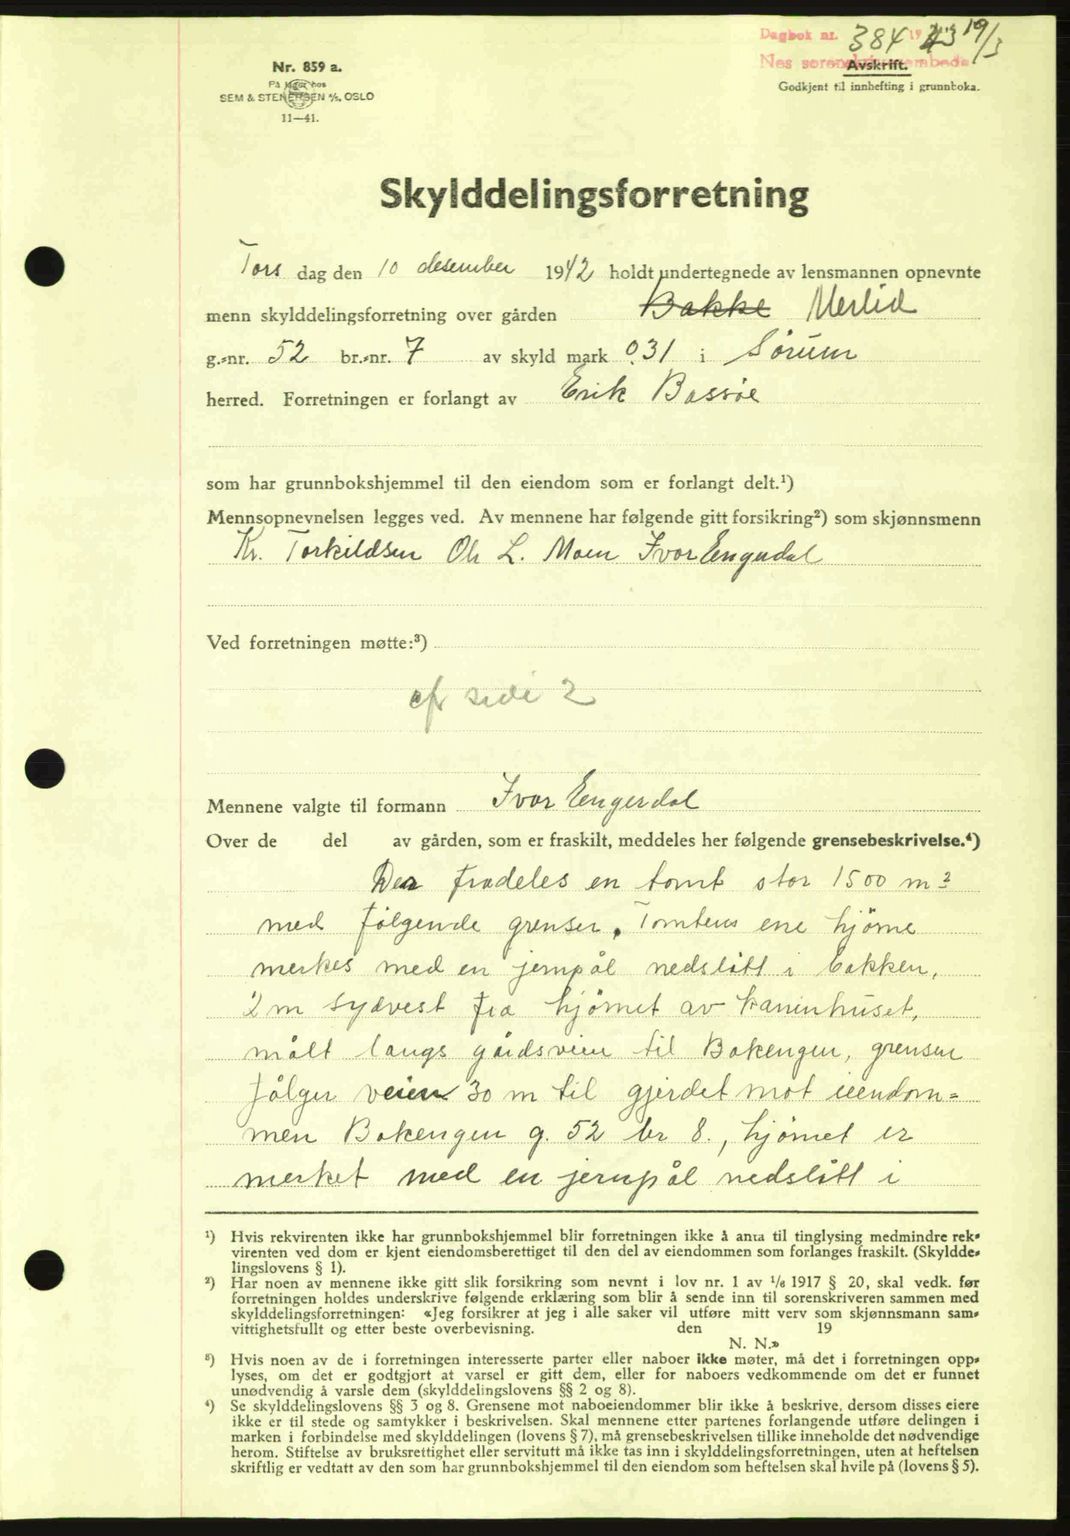 Dagbok nr. 384 1943 19/3
Nes sorenskriverembede
Avskrift.
Godkjent til innhefting i grunnboka.
Nr. 859 a.
På lager hos
SEM & STENERSEN A/S, OSLO
11—41.
Skylddelingsforretning
Tors dag den 10 desember 1942 holdt undertegnede av lensmannen opnevnte
menn skylddelingsforretning over gården Bakke Merlid
g.-nr. 52 br.-nr. 7 av skyld mark 0.31 i Sørum
herred. Forretningen er forlangt av Erik Bassøe
som har grunnbokshjemmel til den eiendom som er forlangt delt.¹)
Mennsopnevnelsen legges ved. Av mennene har følgende gitt forsikring²) som skjønnsmenn
Kr. Torkildsen Ole L. Moen Ivar Engerdal
Ved forretningen møtte:³)
cfr side 2
Mennene valgte til formann Ivar Engerdal
Over de del av gården, som er fraskilt, meddeles her følgende grensebeskrivelse.⁴)
Der fradeles en tomt stor 1500 m²
med følgende grenser. Tomtens ene hjørne
merkes med en jernpål nedslått i bakken,
2 m sydvest fra hjørnet av kaninhuset,
målt langs gårdsveien til Bakengen, grensen
følger veien 30 m til gjerdet mot eiendom=
men Bakengen g. 52 br 8., hjørnet er
merket med en jernpål nedslått i
¹) Hvis rekvirenten ikke har grunnbokshjemmel blir forretningen ikke å anta til tinglysing medmindre rek-
virenten ved dom er kjent eiendomsberettiget til den del av eiendommen som forlanges fraskilt. (Skyldde-
lingslovens § 1).
²) Har noen av mennene ikke gitt slik forsikring som nevnt i lov nr. 1 av 1/6 1917 § 20, skal vedk. før
forretningen holdes underskrive følgende erklæring som blir å sende inn til sorenskriveren sammen med
skylddelingsforretningen: «Jeg forsikrer at jeg i alle saker vil utføre mitt verv som skjønnsmann sam-
vittighetsfullt og etter beste overbevisning. den 19
N. N.»
³) Hvis noen av de i forretningen interesserte parter eller naboer ikke møter, må det i forretningen opp-
lyses, om det er godtgjort at varsel er gitt dem, eller for naboers vedkommende om det er funnet
unødvendig å varsle dem (skylddelingslovens §§ 2 og 8).
⁴) Se skylddelingslovens §§ 3 og 8. Grensene mot naboeiendommer blir ikke å beskrive, dersom disses eiere
ikke er til stede og samtykker i beskrivelsen. Skal mennene etter partenes forlangende utføre delingen i
marken i forbindelse med skylddelingen (lovens § 7), må grensebeskrivelsen tillike inneholde det nødvendige
herom. Stiftelse av bruksrettighet eller servitutt må ikke tas inn i skylddelingsforretningen, uten at heftelsen
skriftlig er vedtatt av den som har grunnbokshjemmel til den eiendom som heftelsen skal hvile på (lovens § 5).